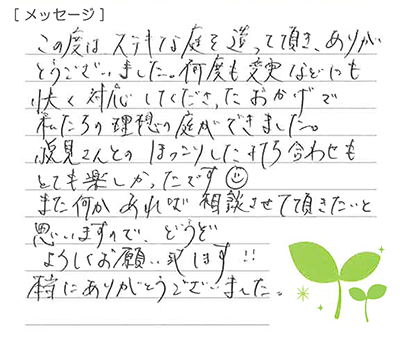 [メッセージ]
この度は ステキな庭を造って頂き、ありが
とうございました。何度も変更などにも
快く対応してくださったおかげで
私たちの理想の庭ができました。
さんとの ほっこりした打ち合わせも
とても楽しかったです
また何かあれば 相談させて頂きたいと
思いますので、どうぞ
よろしくお願い致します!!
本当にありがとうございました。